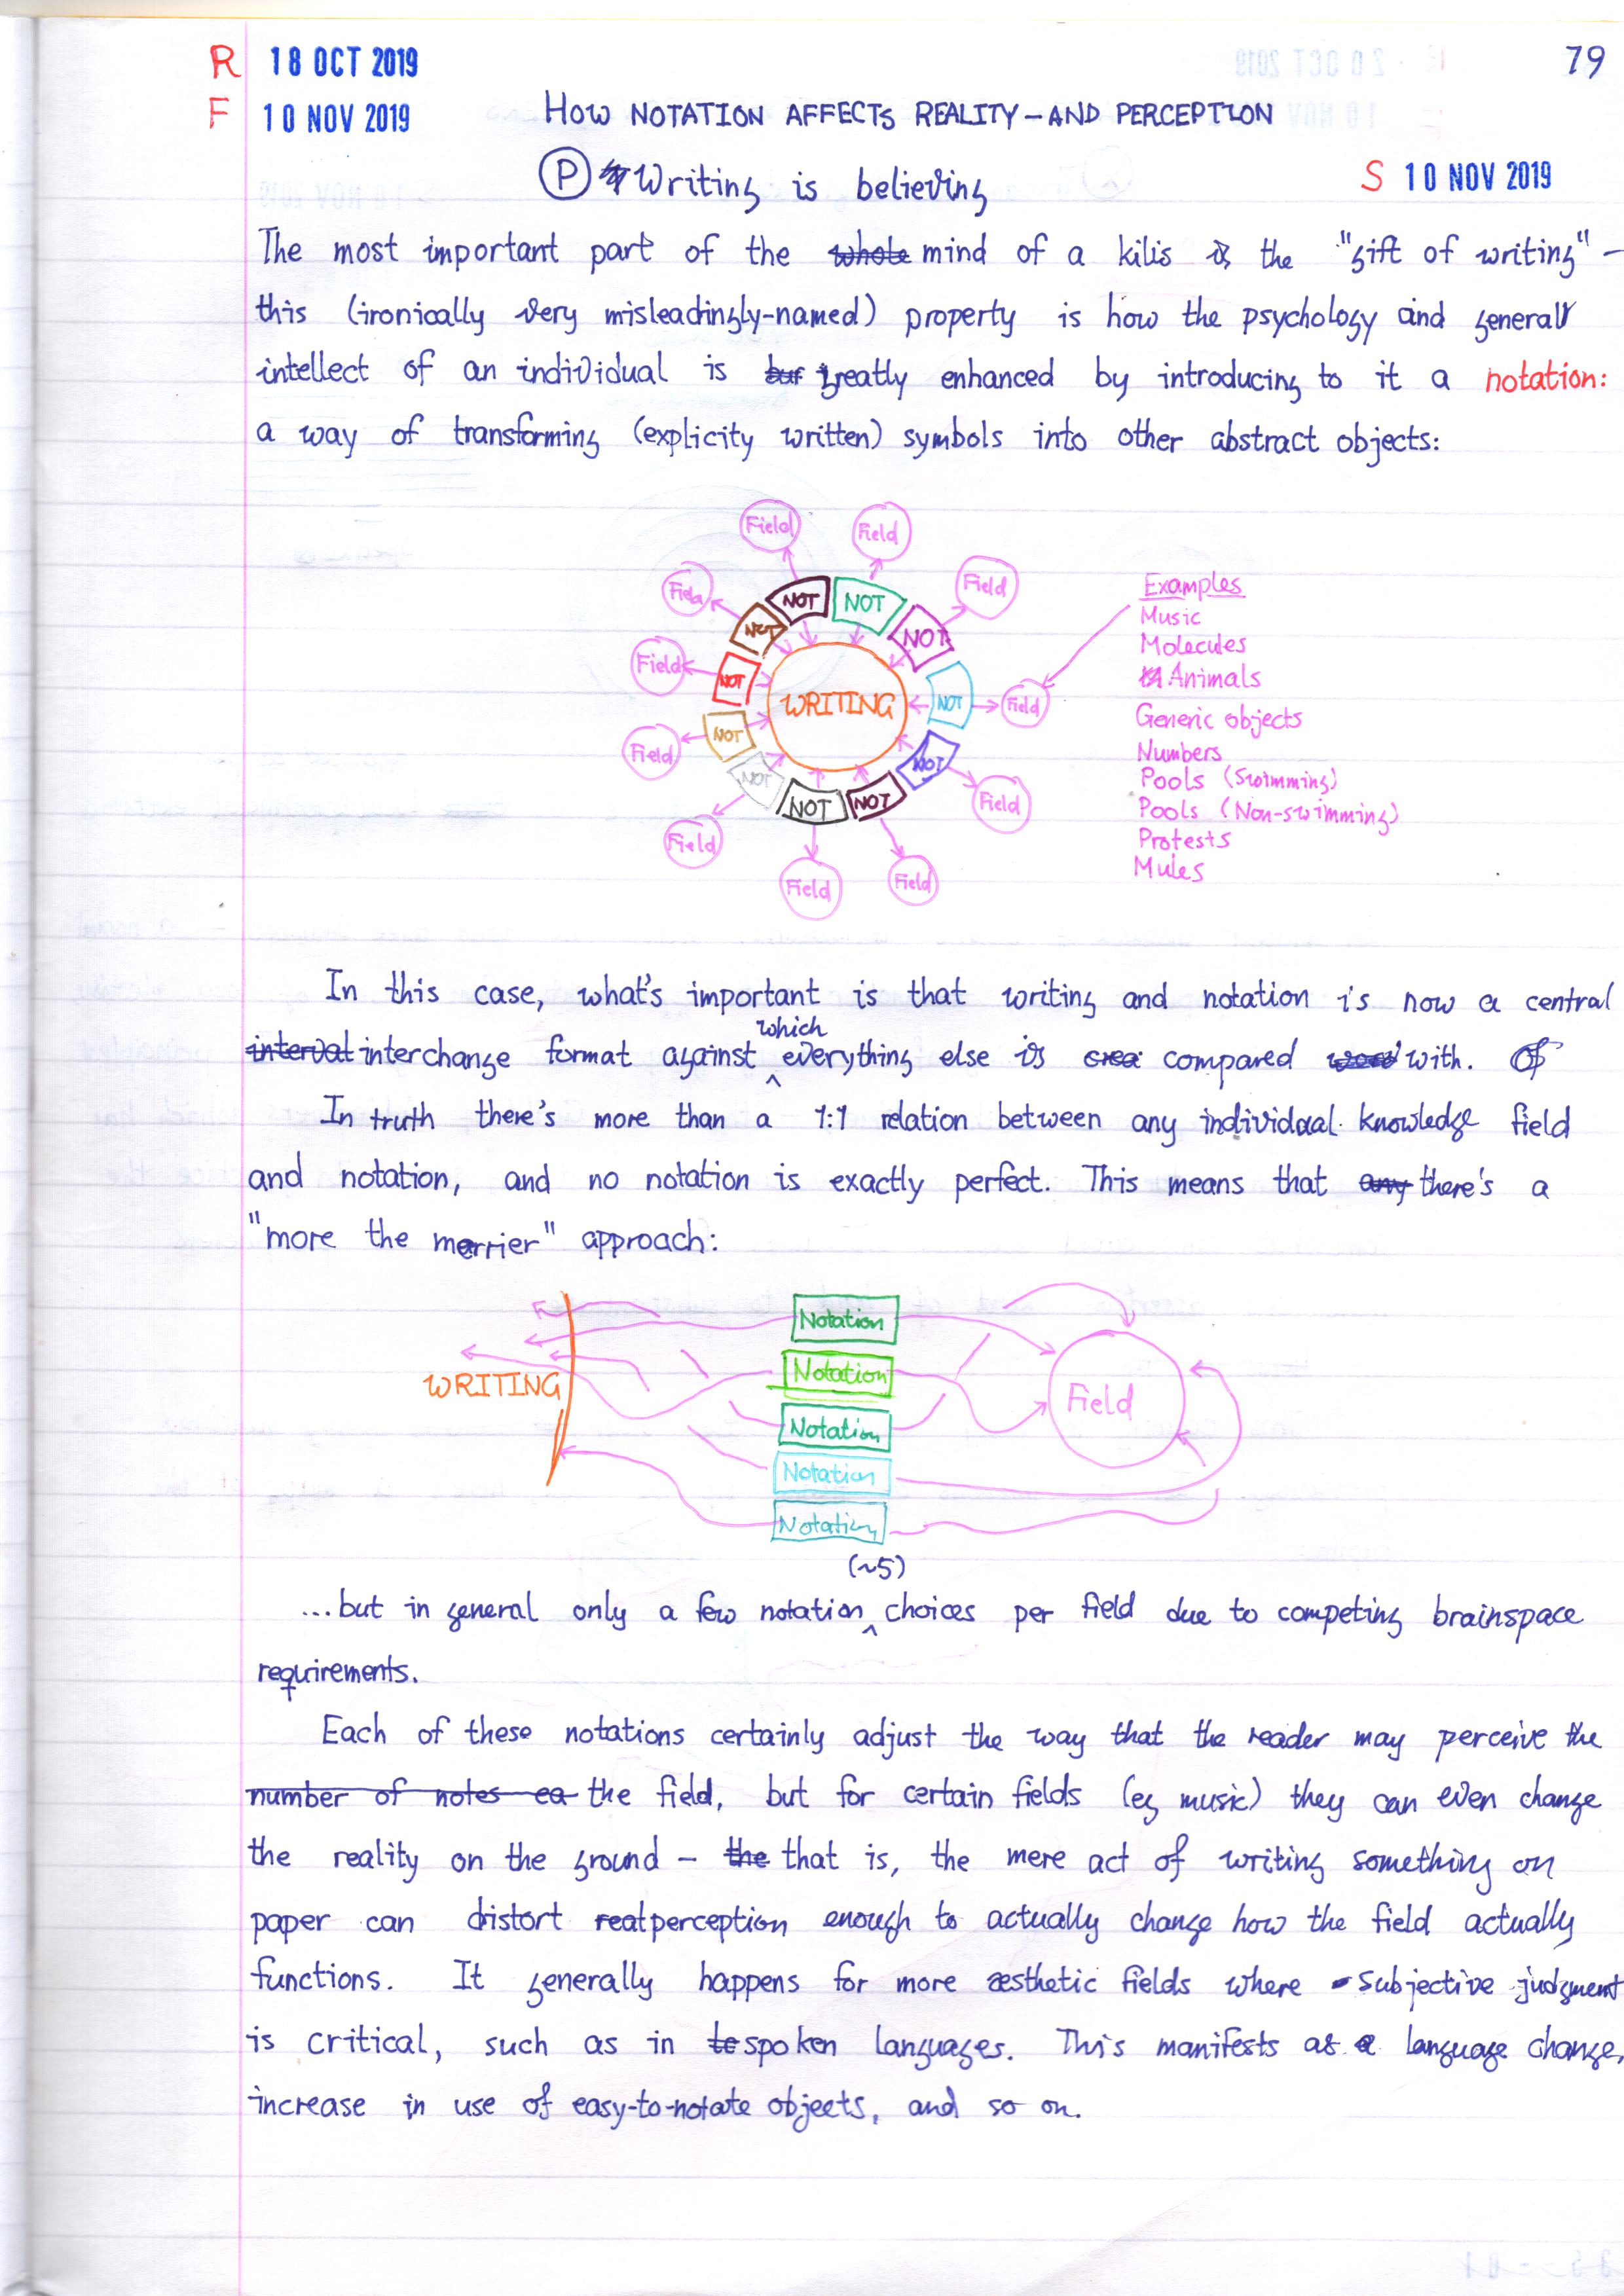 R 18 OCT 2019 79
F 10 NOV 2019 HOW NOTATION AFFECTS REALITY – AND PERCEPTION
P Writing is believing S 10 NOV 2019
The most important part of the whole mind of a kilis is the "gift of writing" –
this (ironically very misleadingly-named) property is how the psychology and general
intellect of an individual is but greatly enhanced by introducing to it a notation:
a way of transforming (explicity written) symbols into other abstract objects:
Field Field
Field Field
NOT NOT
NOT NOT
Field NOT WRITING NOT Field
Field NOT NOT
NOT NOT NOT Field
Field Field Field
Examples
Music
Molecules
Animals
Generic objects
Numbers
Pools (Swimming)
Pools (Non-swimming)
Protests
Mules
In this case, what's important is that writing and notation is now a central
interval interchange format against which everything else is compared with. Of
In truth there's more than a 1:1 relation between any individual knowledge field
and notation, and no notation is exactly perfect. This means that any there's a
"more the merrier" approach:
Notation
Notation
WRITING Field
Notation
Notation
Notation
(~5)
...but in general only a few notation choices per field due to competing brainspace
requirements.
Each of these notations certainly adjust the way that the reader may perceive the
number of notes ea the field, but for certain fields (eg music) they can even change
the reality on the ground – the that is, the mere act of writing something on
paper can distort real perception enough to actually change how the field actually
functions. It generally happens for more æsthetic fields where subjective judgment
is critical, such as in to spoken languages. This manifests as a language change,
increase in use of easy-to-notate objects, and so on.